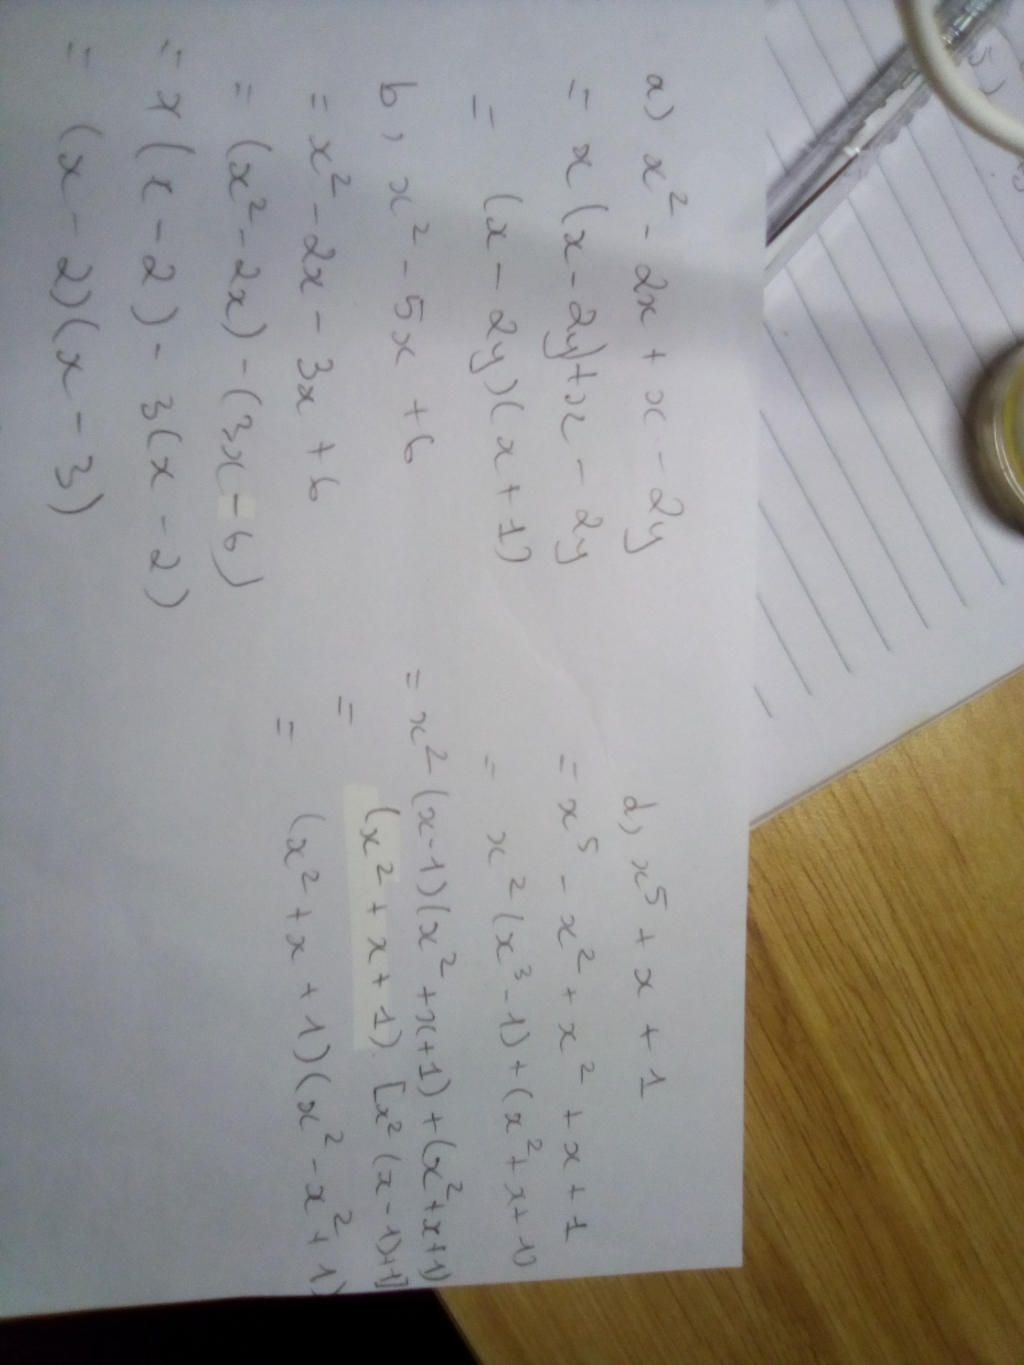 a) x² - 2x + x - 2y
= x (x - 2y) + x - 2y
= (x - 2y)(x + 1)
b, x² - 5x + 6
= x² - 2x - 3x + 6
= (x² - 2x) - (3x - 6)
= x (x - 2) - 3(x - 2)
= (x - 2)(x - 3)
d, x⁵ + x + 1
= x⁵ - x² + x² + x + 1
= x² (x³ - 1) + (x² + x + 1)
= x² (x-1)(x² + x + 1) + (x² + x + 1)
= (x² + x + 1). [x² (x - 1) + 1]
= (x² + x + 1)(x² - x² + 1)